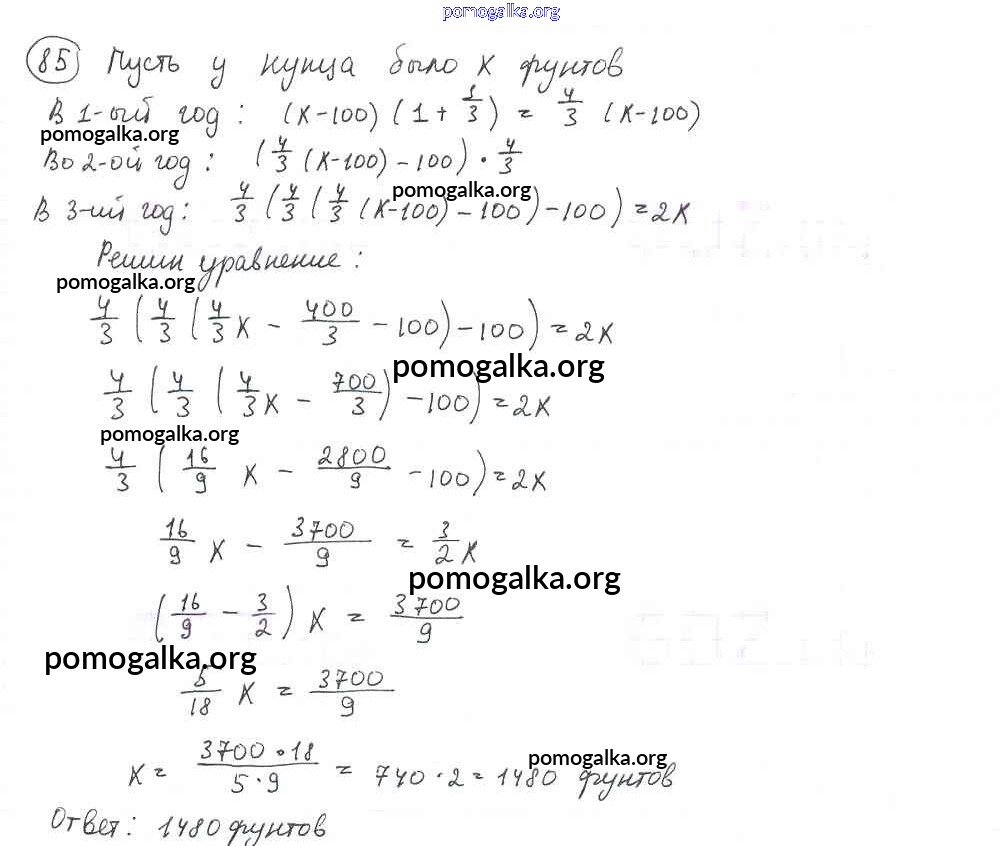 pomogalka.org
85 Пусть у купца было x фунтов
В 1-ый год: (x-100)(1+1/3) = 4/3 (x-100)
pomogalka.org
Во 2-ой год: (4/3 (x-100) - 100) · 4/3
pomogalka.org
В 3-ий год: 4/3 (4/3 (4/3 (x-100) - 100) - 100) = 2x
Решим уравнение:
pomogalka.org
4/3 (4/3 (4/3 x - 400/3 - 100) - 100) = 2x
pomogalka.org
4/3 (4/3 (4/3 x - 700/3) - 100) = 2x
pomogalka.org
4/3 (16/9 x - 2800/9 - 100) = 2x
16/9 x - 3700/9 = 3/2 x
pomogalka.org
(16/9 - 3/2) x = 3700/9
pomogalka.org
5/18 x = 3700/9
pomogalka.org
x = 3700·18/5·9 = 740·2 = 1480 фунтов
Ответ: 1480 фунтов